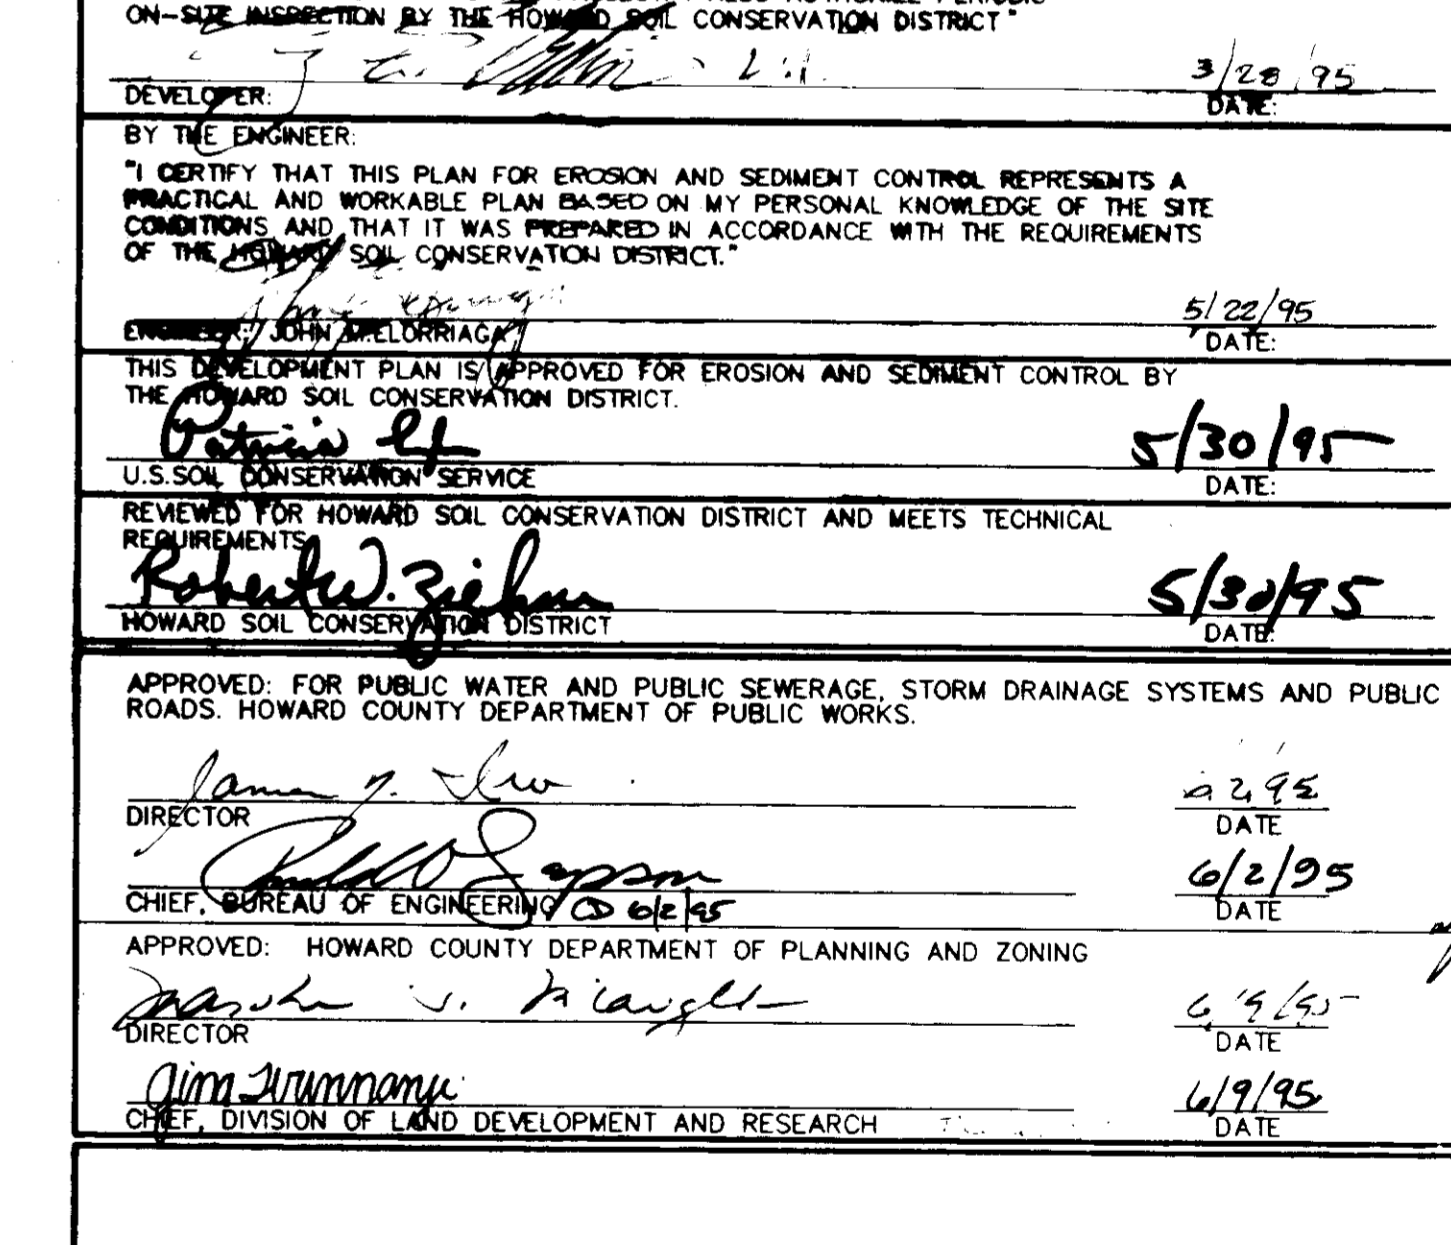 ON-SITE INSPECTION BY THE HOWARD SOIL CONSERVATION DISTRICT"
3/28/95
DEVELOPER: DATE:
BY THE ENGINEER:
"I CERTIFY THAT THIS PLAN FOR EROSION AND SEDIMENT CONTROL REPRESENTS A
PRACTICAL AND WORKABLE PLAN BASED ON MY PERSONAL KNOWLEDGE OF THE SITE
CONDITIONS AND THAT IT WAS PREPARED IN ACCORDANCE WITH THE REQUIREMENTS
OF THE HOWARD SOIL CONSERVATION DISTRICT."
5/22/95
ENGINEER: JOHN M. ELORRIAGA DATE:
THIS DEVELOPMENT PLAN IS APPROVED FOR EROSION AND SEDIMENT CONTROL BY
THE HOWARD SOIL CONSERVATION DISTRICT.
Patricia 5/30/95
U.S. SOIL CONSERVATION SERVICE DATE:
REVIEWED FOR HOWARD SOIL CONSERVATION DISTRICT AND MEETS TECHNICAL
REQUIREMENTS
Robert W. Ziehm 5/30/95
HOWARD SOIL CONSERVATION DISTRICT DATE:
APPROVED: FOR PUBLIC WATER AND PUBLIC SEWERAGE, STORM DRAINAGE SYSTEMS AND PUBLIC
ROADS. HOWARD COUNTY DEPARTMENT OF PUBLIC WORKS.
James
DIRECTOR DATE
6/2/95
CHIEF, BUREAU OF ENGINEERING CD 6/2/95 DATE
APPROVED: HOWARD COUNTY DEPARTMENT OF PLANNING AND ZONING
6/9/95
DIRECTOR DATE
6/9/95
CHIEF, DIVISION OF LAND DEVELOPMENT AND RESEARCH DATE